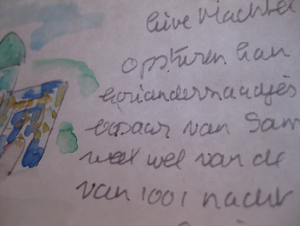 lieve Machtel
opsturen kan
koriandermaandjes
van Sam
weet wel van de
van 1001 nacht